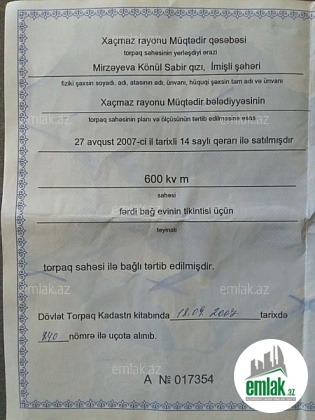 Xaçmaz rayonu Müqtədir qəsəbəsi
torpaq sahəsinin yerləşdiyi ərazi
Mirzəyeva Könül Sabir qızı, İmişli şəhəri
fiziki şəxsin soyadı, adı, atasının adı, ünvanı, hüquqi şəxsin tam adı və ünvanı
Xaçmaz rayonu Müqtədir bələdiyyəsinin
torpaq sahəsinin planı və ölçüsünün tərtib edilməsinə əsas
27 avqust 2007-ci il tarixli 14 saylı qərarı ilə satılmışdır
600 kv m
sahəsi
fərdi bağ evinin tikintisi üçün
təyinatı
torpaq sahəsi ilə bağlı tərtib edilmişdir.
Dövlət Torpaq Kadastrı kitabında 18.09.2007 tarixdə
840 nömrə ilə uçota alınıb.
A № 017354
emlak.az
emlak.az
emlak.az
emlak.az
emlak.az